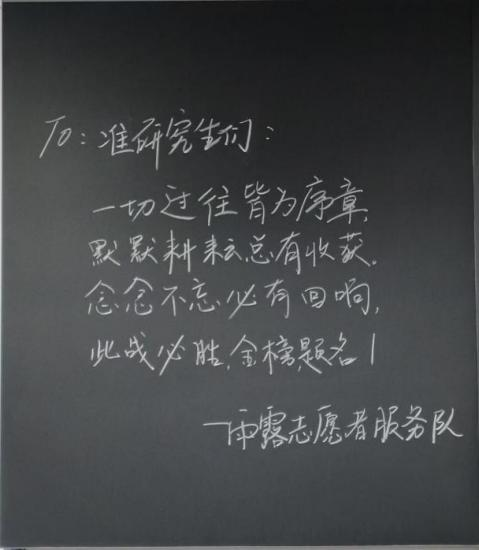 To：准研究生们：
一切过往皆为序章，
默默耕耘总有收获。
念念不忘必有回响，
此战必胜，金榜题名！
—雨露志愿者服务队